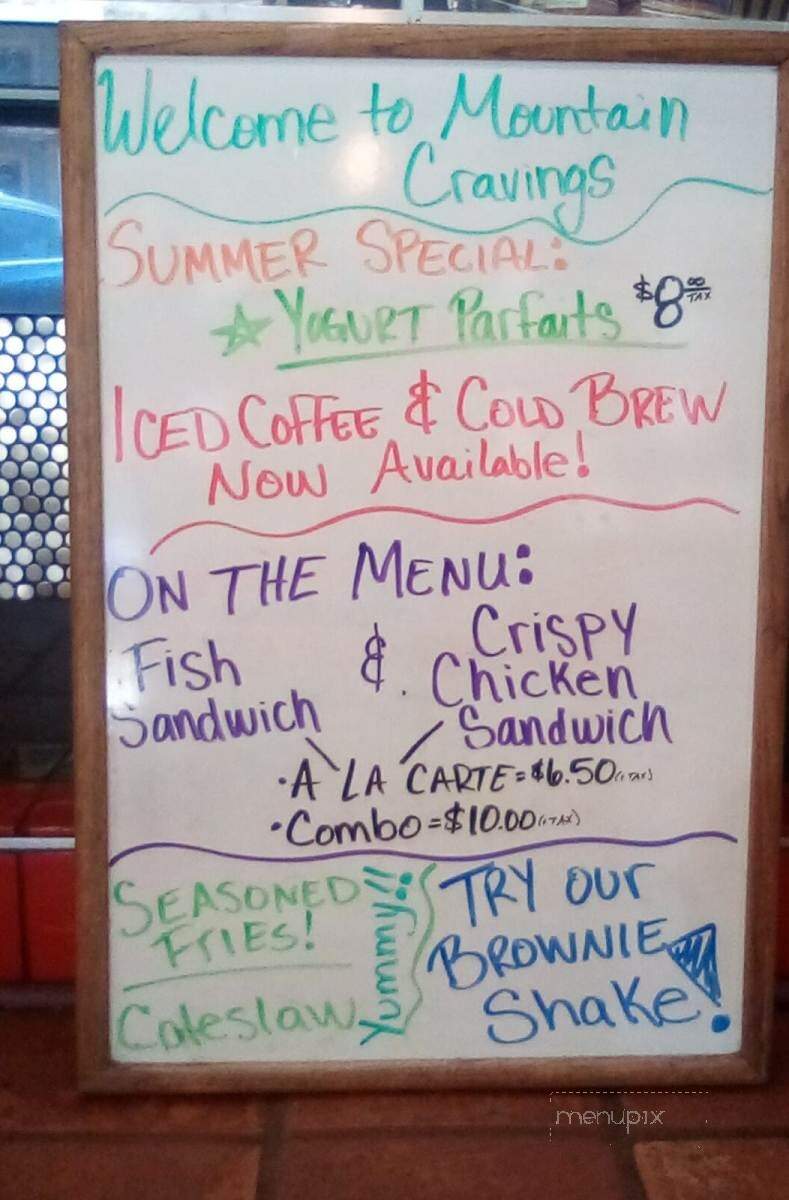 Welcome to Mountain
Cravings
SUMMER SPECIAL:
YOGURT Parfaits $8 00 TAX
ICED COFFEE & COLD BREW
NOW Available!
ON THE MENU:
Fish & Crispy
Sandwich Chicken
Sandwich
• A LA CARTE = $6.50 (+TAX)
• Combo = $10.00 (+TAX)
SEASONED
FRIES!
Coleslaw
Yummy!!
TRY OUR
BROWNIE
Shake!
menupix